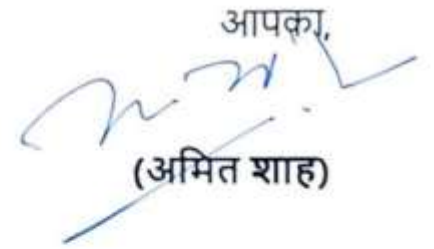 आपका,
(अमित शाह)